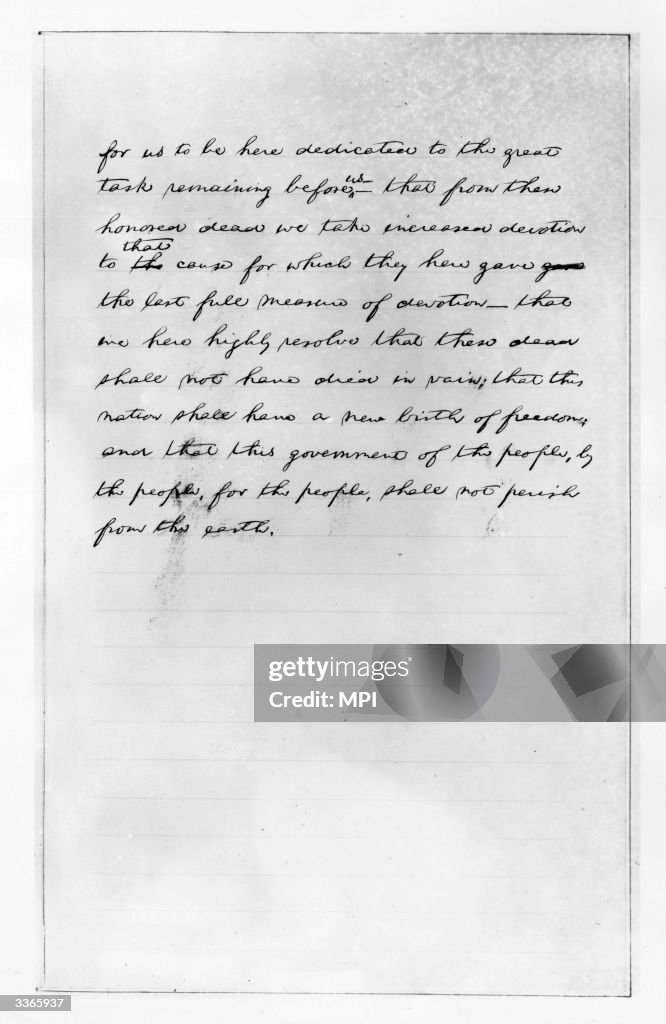 for us to be here dedicated to the great
task remaining before us — that from these
honored dead we take increased devotion
that
to the cause for which they here gave gave
the last full measure of devotion — that
we here highly resolve that these dead
shall not have died in vain; that this
nation shall have a new birth of freedom;
and that this government of the people, by
the people, for the people, shall not perish
from the earth.
gettyimages®
Credit: MPI
3365937